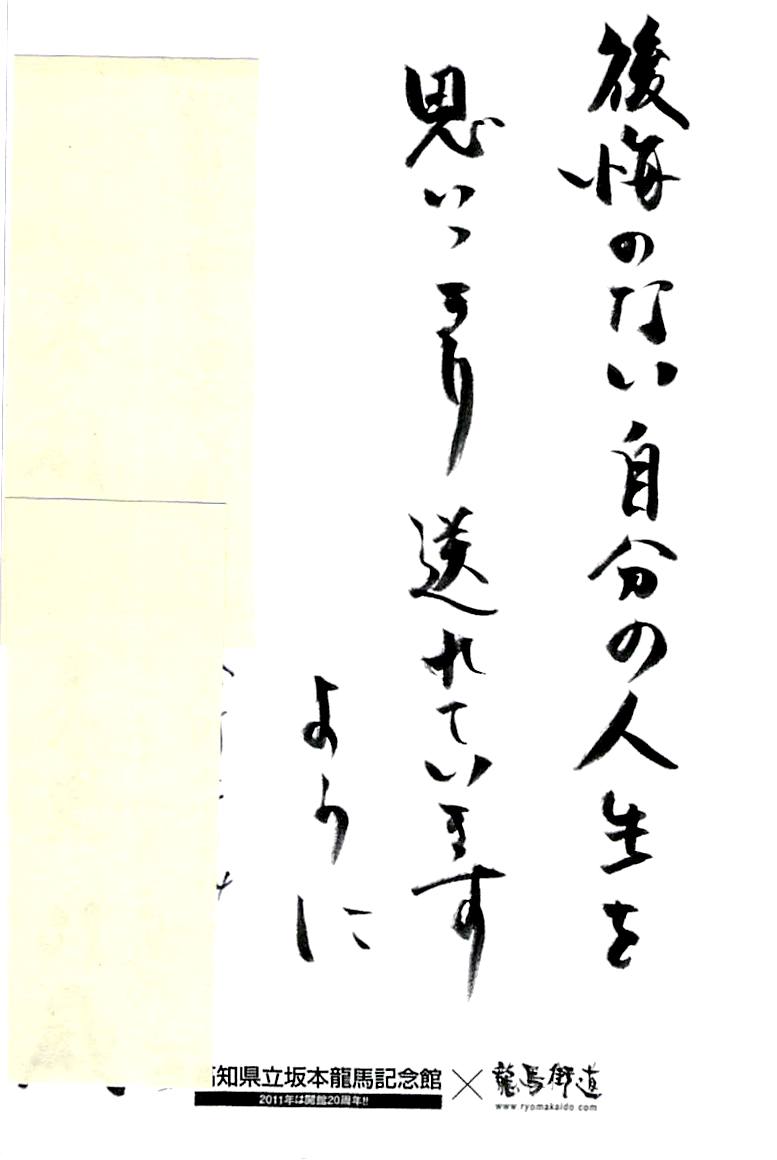 後悔のない自分の人生を
思いっきり送れています
ように
高知県立坂本龍馬記念館×龍馬街道
2011年は開館20周年!!
www.ryomakaido.com